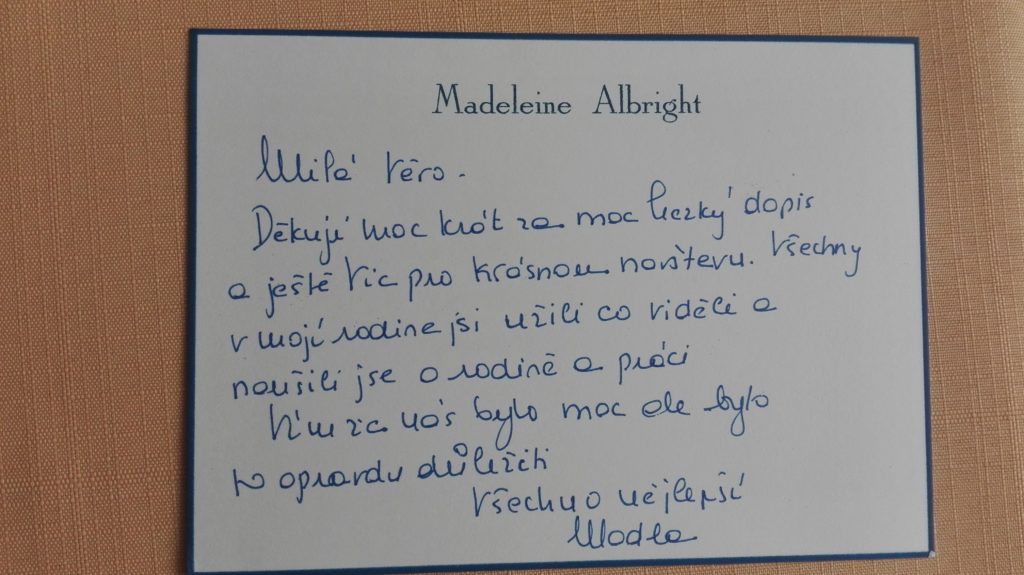 Madeleine Albright
Milá Věro.
Děkují moc krát za moc hezký dopis
a ještě víc pro krásnou navštevu. Všechny
v mojí rodine jsi užili co viděli a
naušili jse o rodině a práci
Vím za nás bylo moc ale bylo
to opravdu důležiti
Všechno nejlepší
Madla